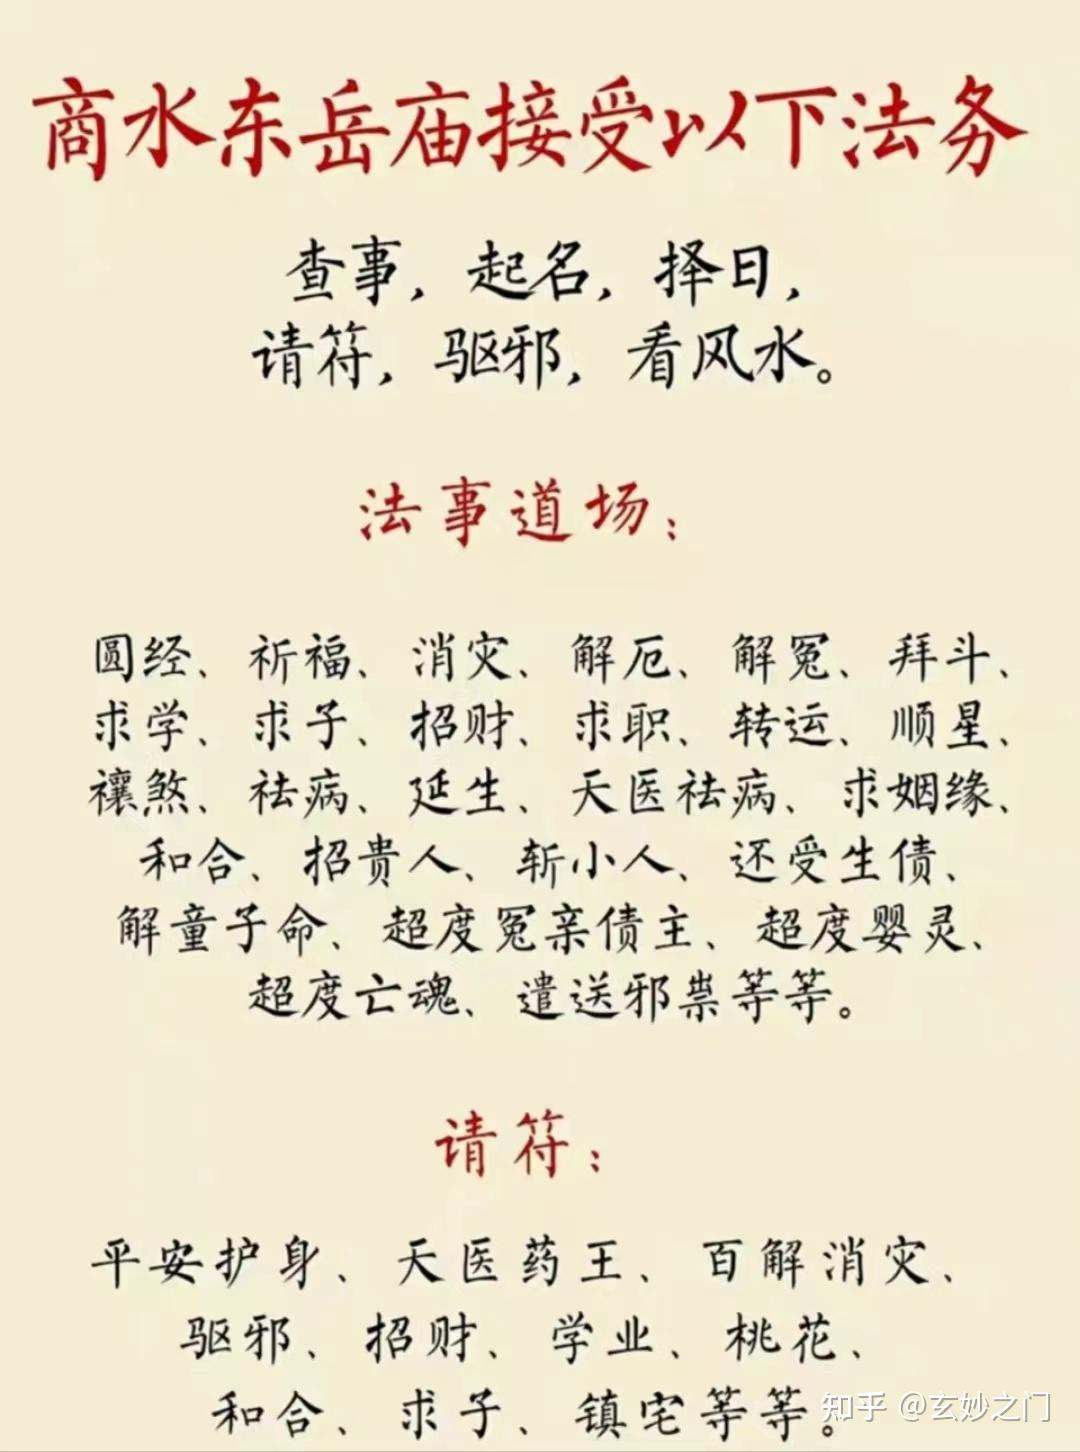 商水东岳庙接受以下法务
查事，起名，择日，
请符，驱邪，看风水。
法事道场：
圆经、祈福、消灾、解厄、解冤、拜斗、
求学、求子、招财、求职、转运、顺星、
禳煞、祛病、延生、天医祛病、求姻缘、
和合、招贵人、斩小人、还受生债、
解童子命、超度冤亲债主、超度婴灵、
超度亡魂、遣送邪祟等等。
请符：
平安护身、天医药王、百解消灾、
驱邪、招财、学业、桃花、
和合、求子、镇宅等等。
知乎 @玄妙之门